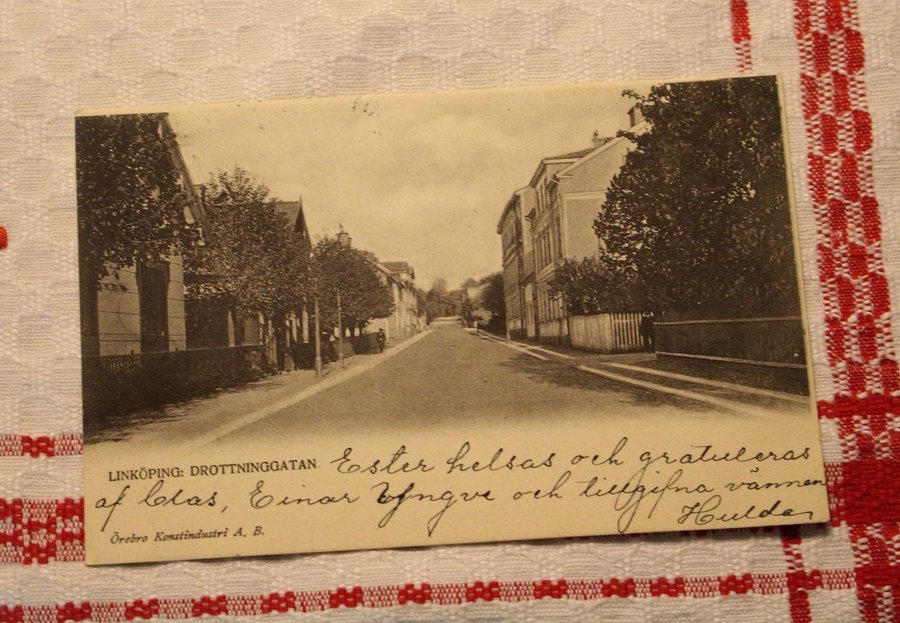 LINKÖPING: DROTTNINGGATAN. Ester helsas och gratuleras
af Clas, Einar Yngve och tillgifna vännen
Hulda
Örebro Konstindustri A. B.